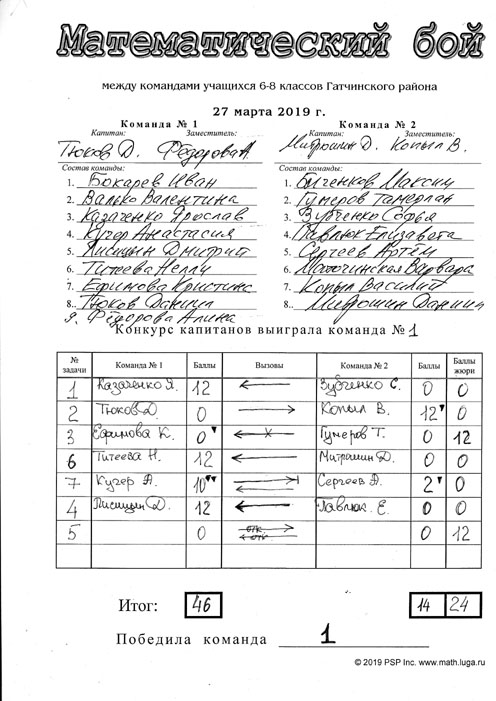 Математический бой
между командами учащихся 6-8 классов Гатчинского района
27 марта 2019 г.
Команда № 1 Команда № 2
Капитан: Заместитель: Капитан: Заместитель:
Тюков Д. Фёдорова А. Митрошин Д. Копыл В.
Состав команды: Состав команды:
1. Бокарев Иван 1. Максим
2. Валько Валентина 2. Гумеров Тамерлан
3. Казаченко Ярослав 3. Зубченко Софья
4. Кучер Анастасия 4. Павлюк Елизавета
5. Лисицын Дмитрий 5. Сергеев Артём
6. Титеева Нелли 6. Варвара
7. Ефимова Кристина 7. Копыл Василий
8.. Тюков Даниил 8.. Митрошин Даниил
9. Фёдорова Алина
Конкурс капитанов выиграла команда № 1
№ задачи Команда № 1 Баллы Вызовы Команда № 2 Баллы Баллы жюри
1 Казаченко Я. 12 ← Зубченко С. 0 0
2 Тюков Д. 0 → Копыл В. 12 0
3 Ефимова К. 0 ← Гумеров Т. 0 12
6 Титеева Н. 12 ← Митрошин Д. 0 0
7 Кучер А. 10 Сергеев А. 2 0
4 Лисицын Д. 12 ← Павлюк Е. 0 0
5 0 отк отк 0 12
Итог: 46 14 24
Победила команда 1
© 2019 PSP Inc. www.math.luga.ru